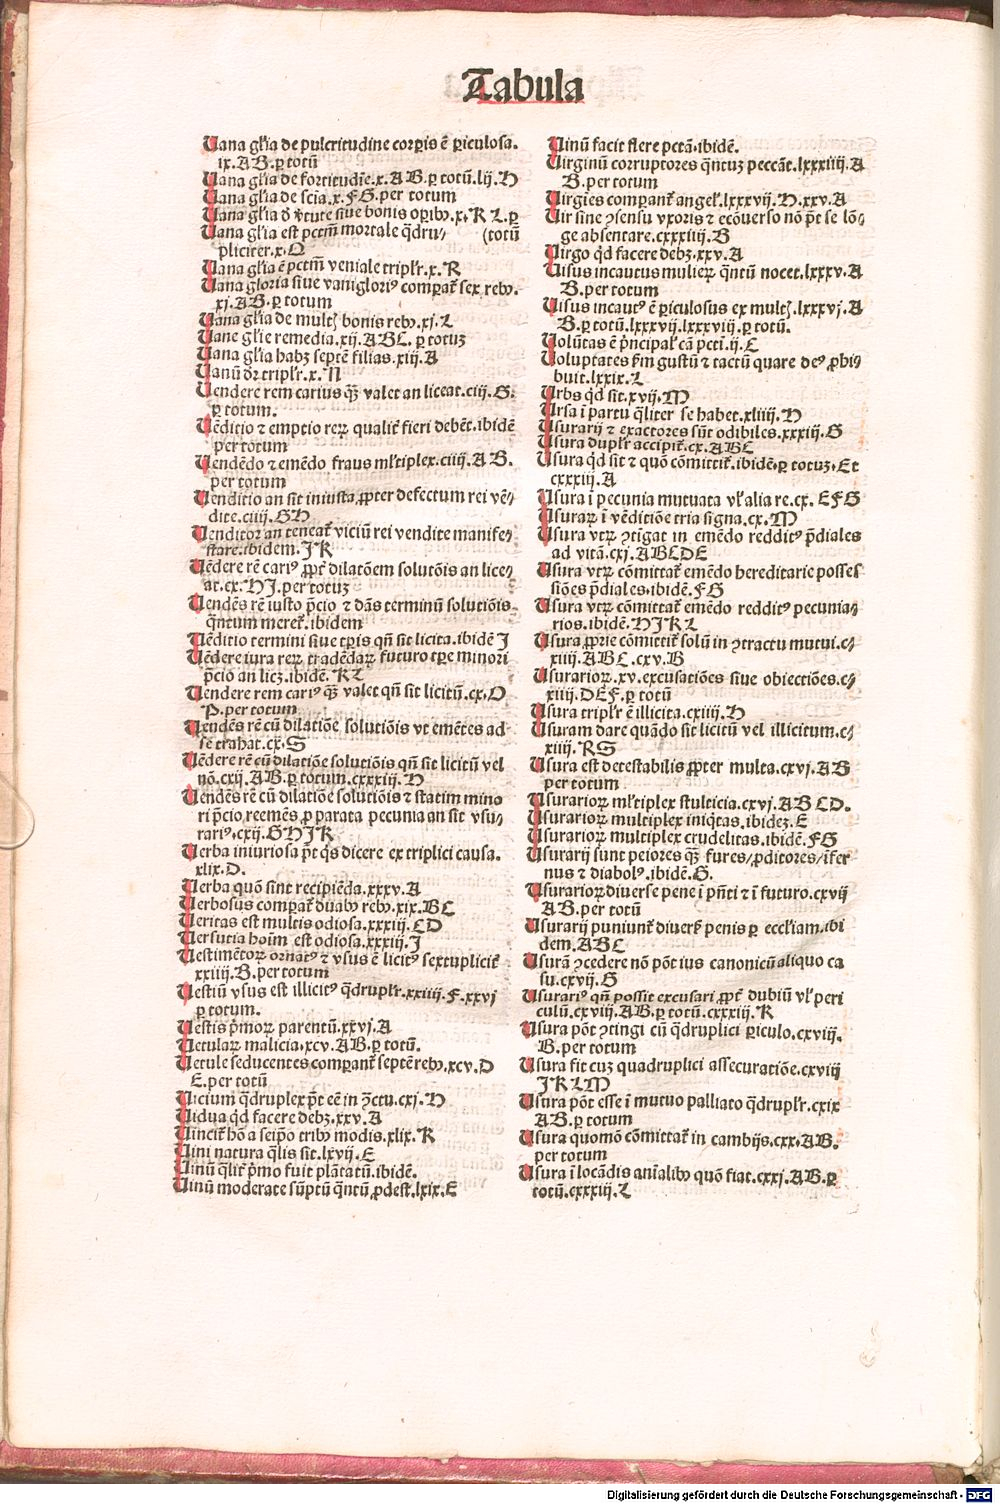 Tabula
Vana gl̄ia de pulcritudine corꝑis ē ꝑiculosa.
ix.AB.ꝑ totū
Vana gl̄ia de fortitudīe.x.AB.ꝑ totū.lij.H
Vana gl̄ia de scia.x.FG.per totum
Vana gl̄ia ď v̓tute siue bonis oꝑibꝰ.x.K L.ꝑ
Vana gl̄ia est pctm̄ mortale q̄dru⸗ (totū
pliciter.x.Q
Vana gl̄ia ē pctm̄ veniale tripl̓r.x.R
Vana gloria siue vaniglorịꝰ comꝑat̄ sex rebꝰ.
xj.AB.ꝑ totum
Vana gl̄ia de multꝭ bonis rebꝰ.xj.L
Vane gl̄ie remedia.xij.ABC.ꝑ totuꝫ
Vana gl̄ia habꝫ septē filias.xiij.A
Vanū dr̄ tripl̓r.x.N
Vendere rem carius qꝫ̄ valet an liceat.ciij.G.
ꝑ totum.
Vēditio ⁊ emptio reꝝ qualit̓ fieri debēt.ibidē
per totum
Vendēdo ⁊ emēdo fraus ml̓tiplex.ciiij.AB.
per totum
Venditio an sit iniusta ꝓpter defectum rei vē⸗
dite.ciiij.GH
Venditor an teneat̄ viciū rei vendite manife⸗
stare.ibidem.IK
Vēdere rē cariꝰ ꝓpt̓ dilatōem solutōis an lice⸗
at.cx.HI.per totuꝫ
Vendēs rē iusto p̄cio ⁊ dās terminū solutiōis
q̄ntum meret̄.ibidem
Vēditio termini siue tꝑis qn̄ sit licita.ibidē I
Vēdere iura reꝝ tradēdaꝝ futuro tꝑe minori
p̄cio an licꝫ.ibidē.KL
Vendere rem cariꝰ qꝫ̄ valet qn̄ sit licitū.cx.O
P.per totum
Vendēs rē cū dilatiōe solutiōis vt emētes ad
se trahat.cx.S
Vēdere rē cū dilatiōe solutiōis qn̄ sit licitū vel
nō.cxij.AB.ꝑ totum.cxxxiij.H
Vendēs rē cū dilatiōe solutiōis ⁊ statim mino
ri p̄cio reemēs ꝓ parata pecunia an sit vsu⸗
rariꝰ.cxij.GHIK
Verba iniuriosa pōt qs dicere ex triplici causa.
xlix.D.
Verba quō sint recipiēda.xxxv.A
Verbosus comꝑat̄ duabꝰ rebꝰ.xix.BC
Veritas est multis odiosa.xxxiij.CD
Versutia hoīm est odiosa.xxxiij.I
Vestimētoꝝ ornatꝰ ⁊ vsus ē licitꝰ sextuplicit̓
xxiiij.B.per totum
Vestiū vsus est illicitꝰ q̄drupl̓r.xxiiij.F.xxvj
ꝑ totum.
Vestis p̓moꝝ parentū.xxvj.A
Vetulaꝝ malicia.xcv.AB.ꝑ totū.
Vetule seducentes comꝑant̄ septē rebꝰ.xcv.D
E.per totū
Vicium q̄druplex pōt eē in ꝯ̄ctu.cxj.H
Vidua qd̓ facere debꝫ.xxv.A
Vincit̓ hō a seip̄o tribꝰ modis.xlix.K
Vini natura q̄lis sit.lxvij.E
Vinū q̄lit̓ p̓mo fuit plātatū.ibidē.
Vinū moderate sūptū q̄ntū ꝓdest.lxix.E
Vinū facit flere pctā.ibidē.
Virginū corruptores q̄ntuꝫ peccāt.lxxxiiij.A
B.per totum
Virgīes comꝑant̄ angel̓.lxxxvij.H.xxv.A
Vir sine ꝯsensu vxoris ⁊ ecōuerso nō pōt se lō⸗
ge absentare.cxxxiiij.B
Virgo qd̓ facere debꝫ.xxv.A
Visus incautus mulieꝝ q̄ntū nocet.lxxxv.A
B.per totum
Visus incautꝰ ē ꝑiculosus ex multꝭ.lxxxvj.A
B.ꝑ totū.lxxxvij.lxxxviij.ꝑ totū.
Volūtas ē p̓ncipal̓ cā pcti.ij.C
Voluptates ẜm gustū ⁊ tactū quare deꝰ ꝓhi⸗
buit.lxxix.L
Vrbs qd̓ sit.xvij.M
Vrsa ī partu q̄liter se habet.xliiij.H
Vsurarij ⁊ exactores sūt odibiles.xxxiij.G
Vsura dupl̓r accipit̓.cx.ABC
Vsura qd̓ sit ⁊ quō cōmittit̓.ibidē.ꝑ totuꝫ.Et
cxxxiij.A
Vsura ī pecunia mutuata vl̓ alia re.cx.EFG
Vsuraꝝ ī vēditiōe tria signa.cx.M
Vsura vtꝝ ꝯtigat in emēdo redditꝰ p̄diales
ad vitā.cxj.ABCDE
Vsura vtꝝ cōmittat̄ emēdo hereditarie posses
siōes p̄diales.ibidē.FG
Vsura vtꝝ cōmittat̄ emēdo redditꝰ pecunia⸗
rios.ibidē.HIKL
Vsura ꝓprie cōmittit̓ solū in ꝯtractu mutui.c⸗
xiiij.ABC.cxv.B
Vsurarioꝝ.xv.excusatiōes siue obiectiōes.c⸗
xiiij.DEF.ꝑ totū
Vsura tripl̓r ē illicita.cxiiij.H
Vsuram dare quādo sit licitū vel illicitum.c⸗
xiiij.RS
Vsura est detestabilis ꝓpter multa.cxvj.AB
per totum
Vsurarioꝝ ml̓tiplex stulticia.cxvj.ABCD.
Vsurarioꝝ multiplex iniq̓tas.ibideꝫ.E
Vsurarioꝝ multiplex crudelitas.ibidē.FG
Vsurarij sunt peiores qꝫ̄ fures/ꝓditores/īfer
nus ⁊ diabolꝰ.ibidē.G.
Vsurarioꝝ diuerse pene ī pn̄ti ⁊ ī futuro.cxvij
AB.per totū
Vsurarij puniunt̄ diuers̓ penis ꝑ eccl̓iam.ibi
dem.ABC
Vsurā ꝯcedere nō pōt ius canonicū aliquo ca
su.cxvij.G
Vsurariꝰ qn̄ possit excusari ꝓpt̓ dubiū vl̓ peri
culū.cxviij.AB.ꝑ totū.cxxxiij.K
Vsura pōt ꝯtingi cū q̄druplici ꝑiculo.cxviij.
B.per totum
Vsura fit cuꝫ quadruplici assecuratiōe.cxviij
IKLM
Vsura pōt esse ī mutuo palliato q̄drupl̓r.cxix
AB.ꝑ totum
Vsura quomō cōmittat̄ in cambijs.cxx.AB.
per totum
Vsura ī locādis aīalibꝰ quō fiat.cxxj.AB.ꝑ
totū.cxxxiij.L
Digitalisierung gefördert durch die Deutsche Forschungsgemeinschaft - DFG